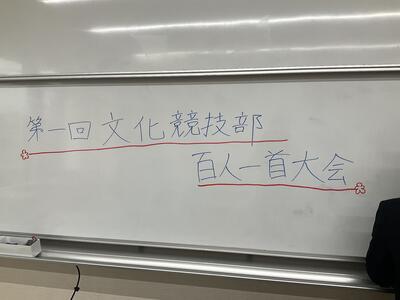 第一回文化競技部
百人一首大会